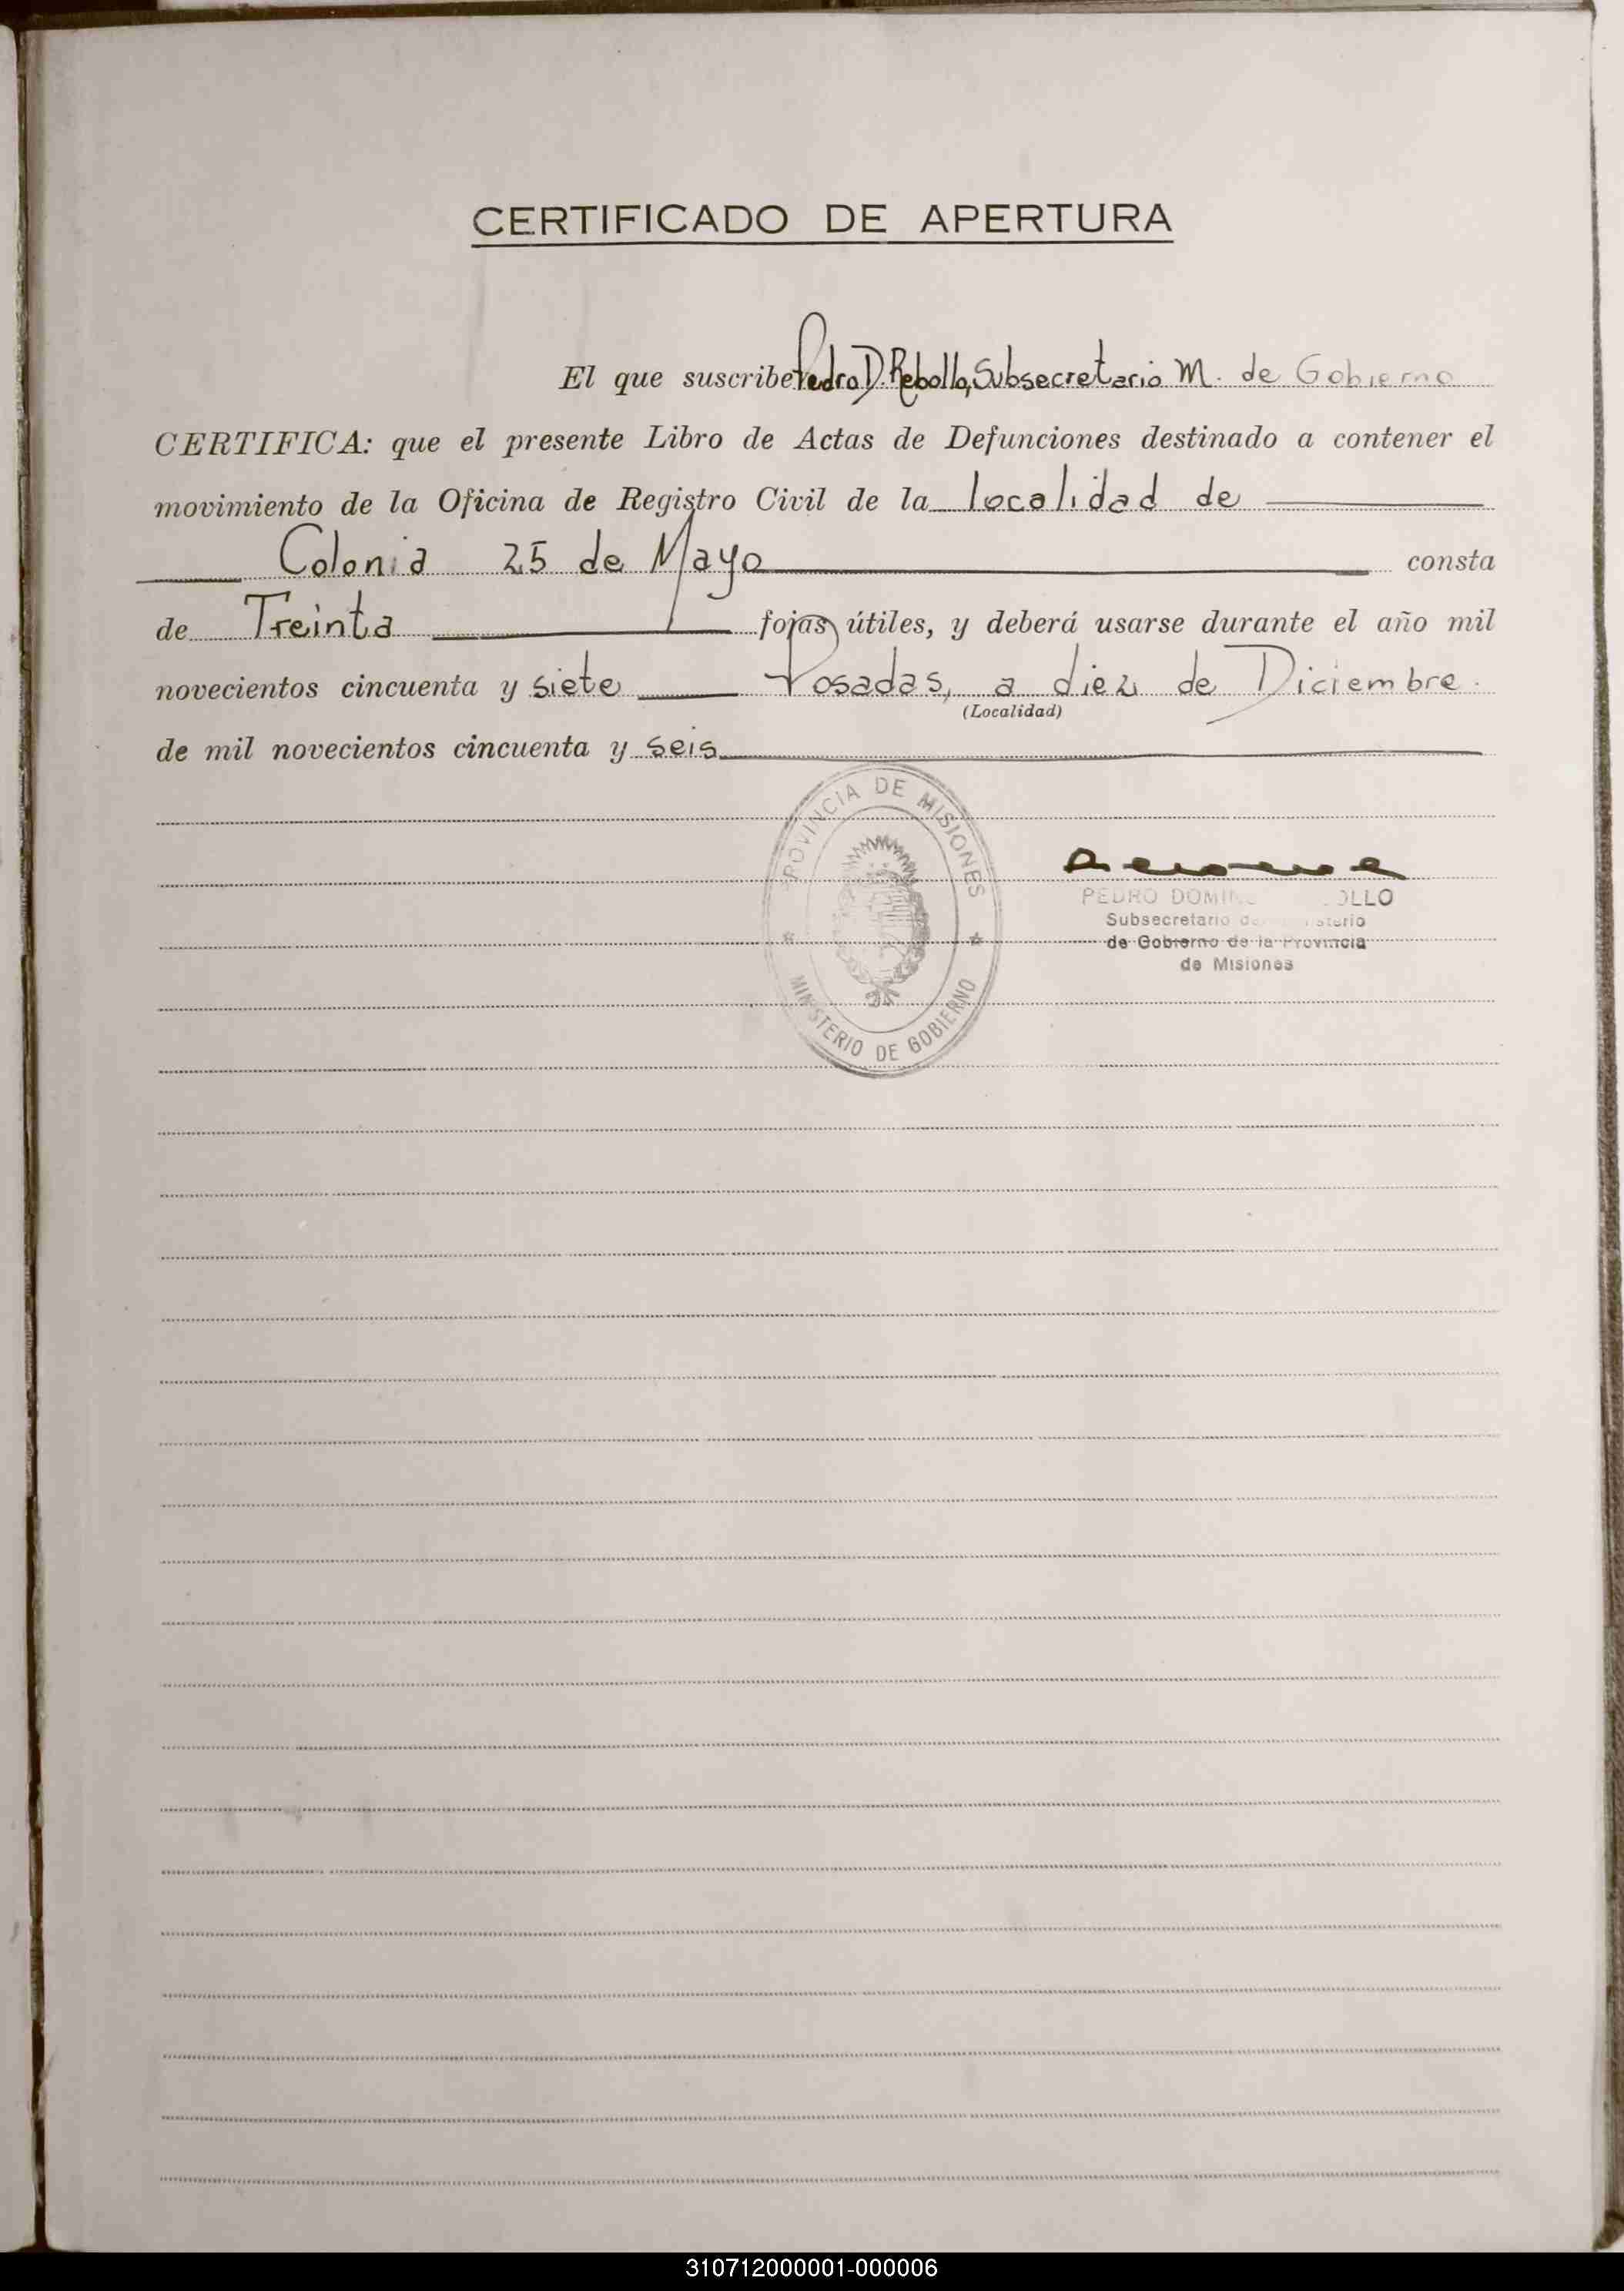 CERTIFICADO DE APERTURA
El que suscribe Pedro D. Rebollo, Subsecretario M. de Gobierno
CERTIFICA: que el presente Libro de Actas de Defunciones destinado a contener el
movimiento de la Oficina de Registro Civil de la localidad de
Colonia 25 de Mayo consta
de Treinta fojas útiles, y deberá usarse durante el año mil
novecientos cincuenta y siete Posadas, a diez de Diciembre.
(Localidad)
de mil novecientos cincuenta y seis
PROVINCIA DE MISIONES
MINISTERIO DE GOBIERNO
PEDRO
Subsecretario
de Gobierno de la Provincia
de Misiones
310712000001-000006